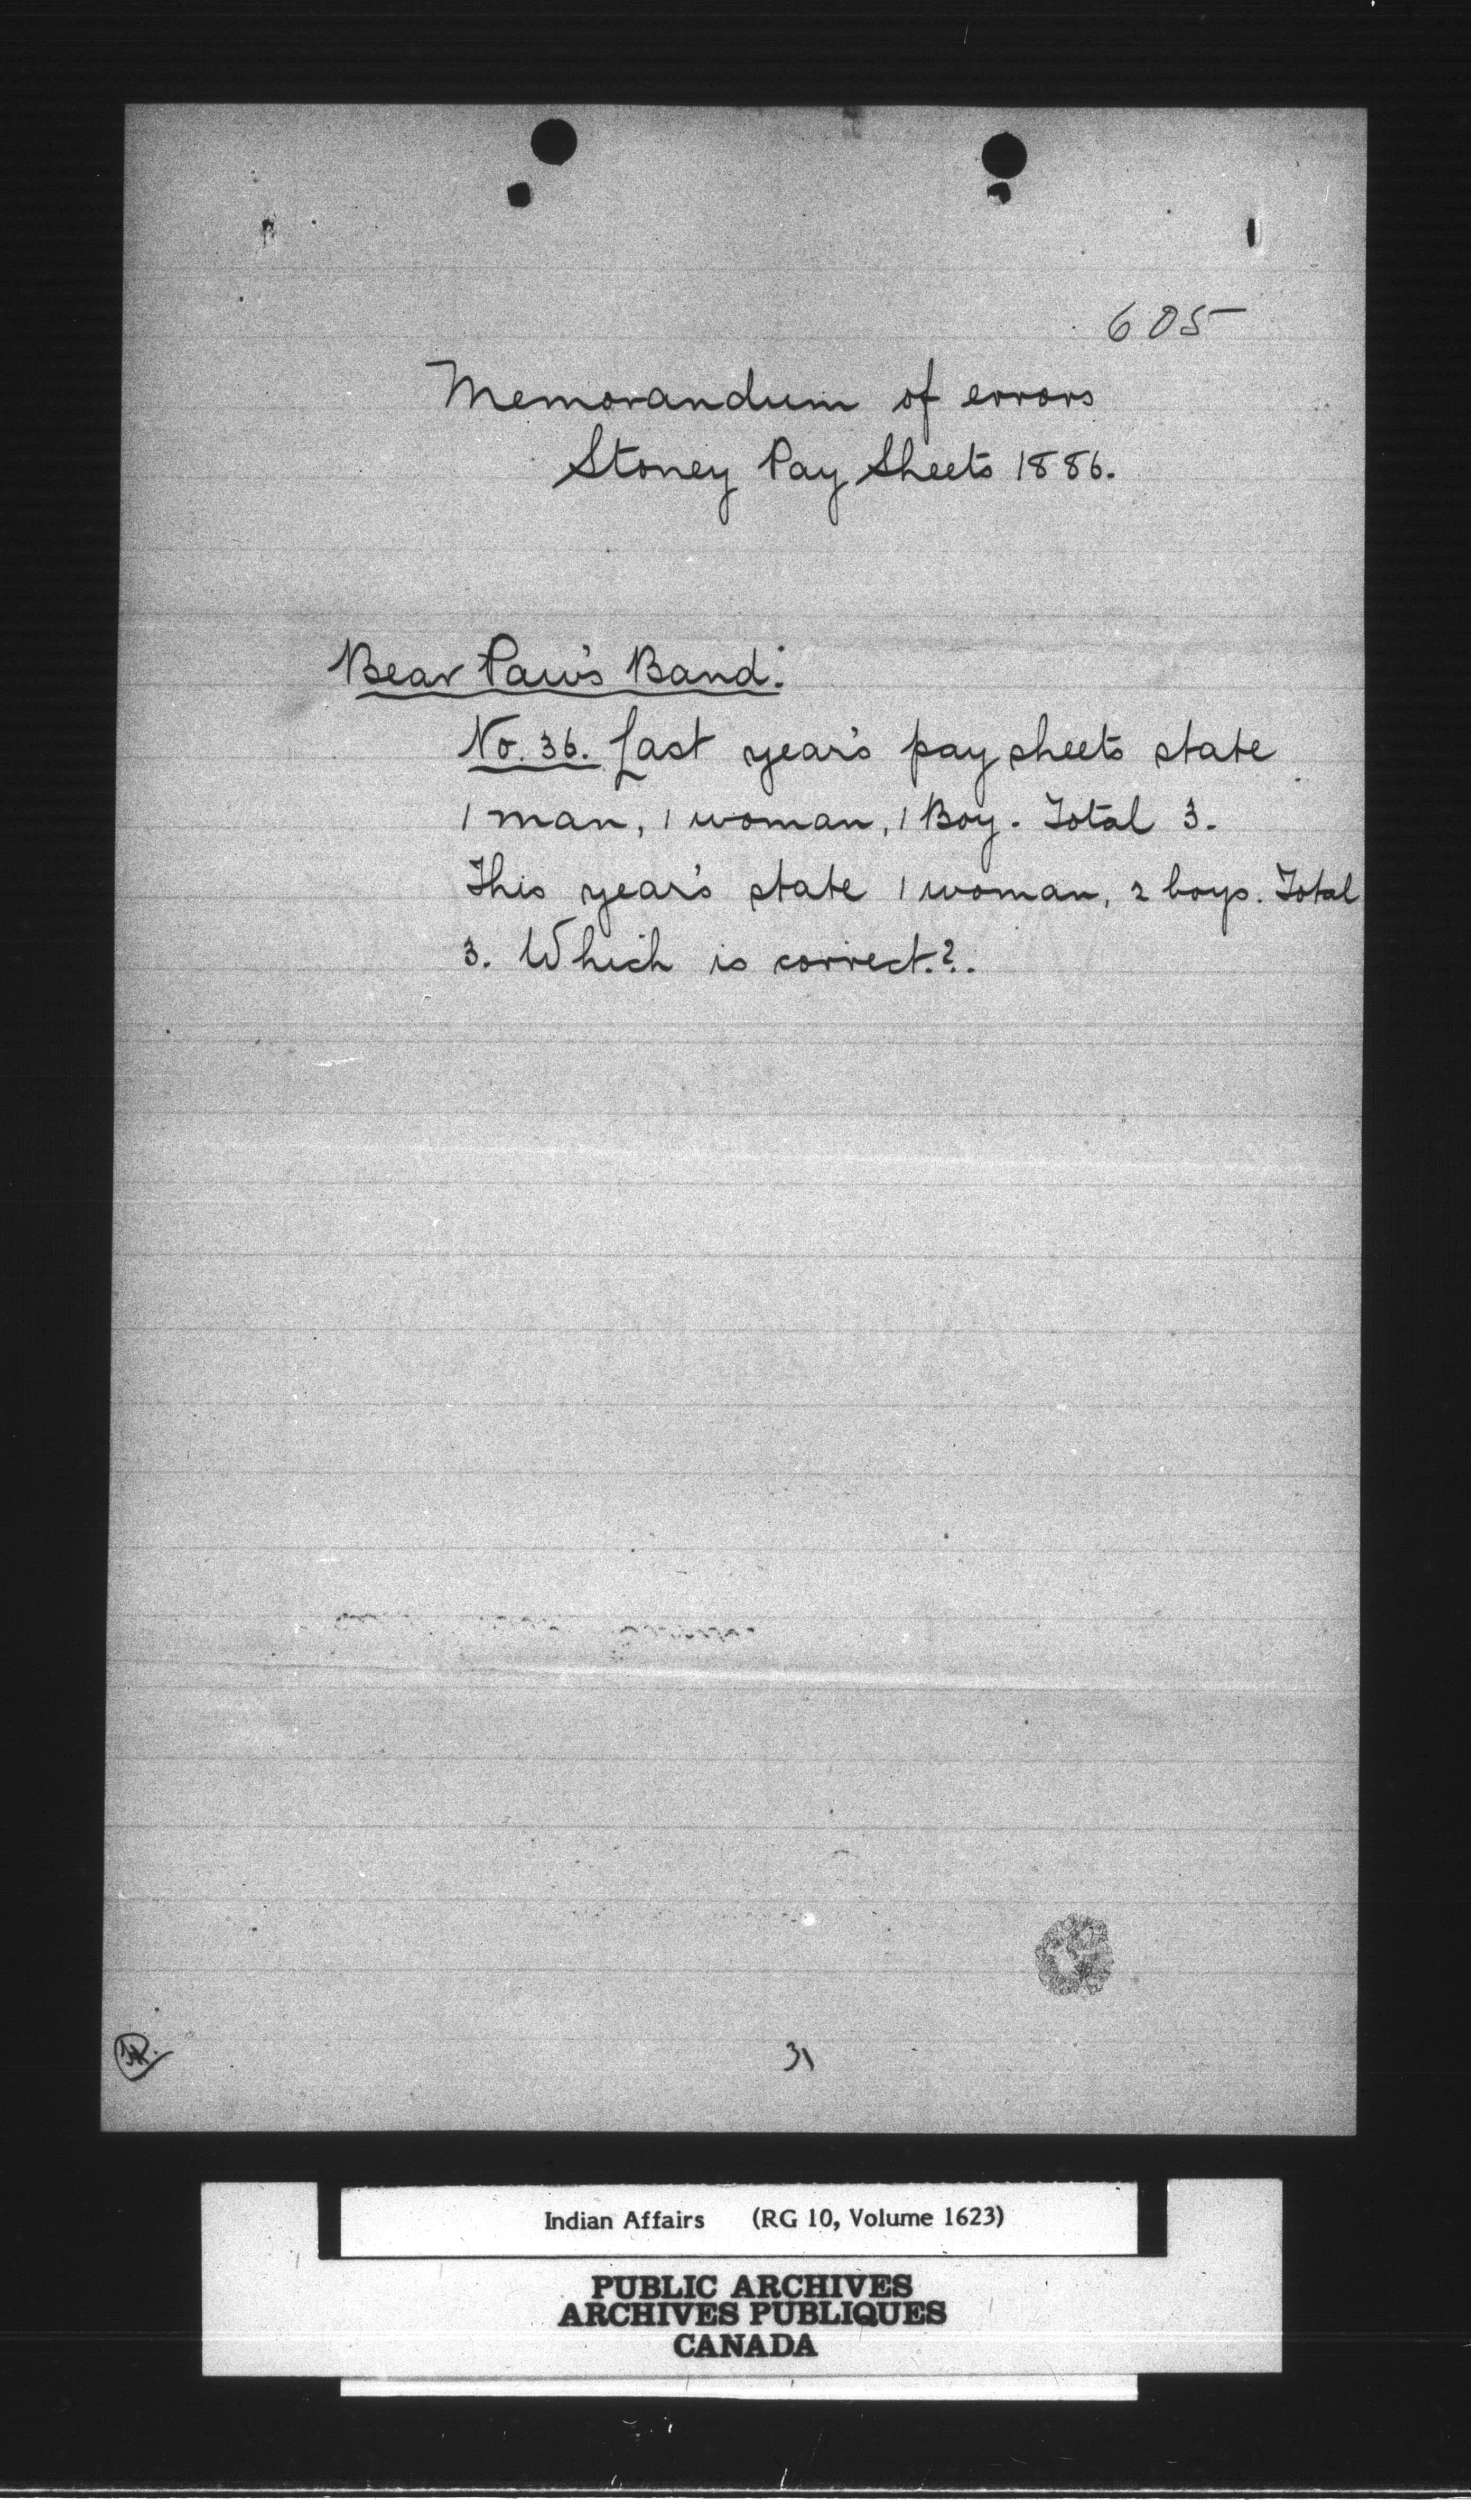 605
Memorandum of errors
Stoney Pay Sheets 1886.
Bear Paw's Band:
No. 36. Last year's pay sheets state
1 man, 1 woman, 1 Boy. Total 3.
This year's state 1 woman, 2 boys. Total
3. Which is correct.?.
31
Indian Affairs (RG 10, Volume 1623)
PUBLIC ARCHIVES
ARCHIVES PUBLIQUES
CANADA